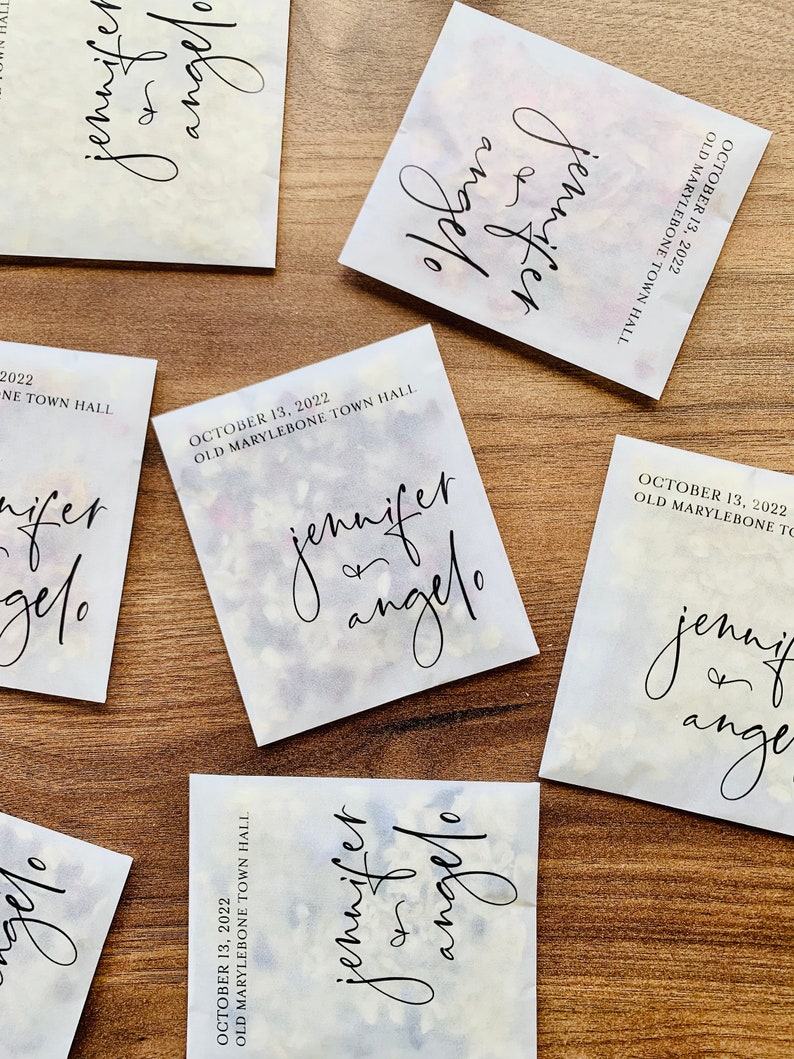 TOWN H
jennifer
&
angelo
OCTOBER 13, 2022
OLD MARYLEBONE TOWN HALL
jennifer
&
angelo
2022
NE TOWN HALL
nnifer
angelo
OCTOBER 13, 2022
OLD MARYLEBONE TOWN HALL
jennifer
&
angelo
OCTOBER 13, 2022
OLD MARYLEBONE TO
jennif
&
ange
angelo
OCTOBER 13, 2022
OLD MARYLEBONE TOWN HALL
jennifer
&
angelo